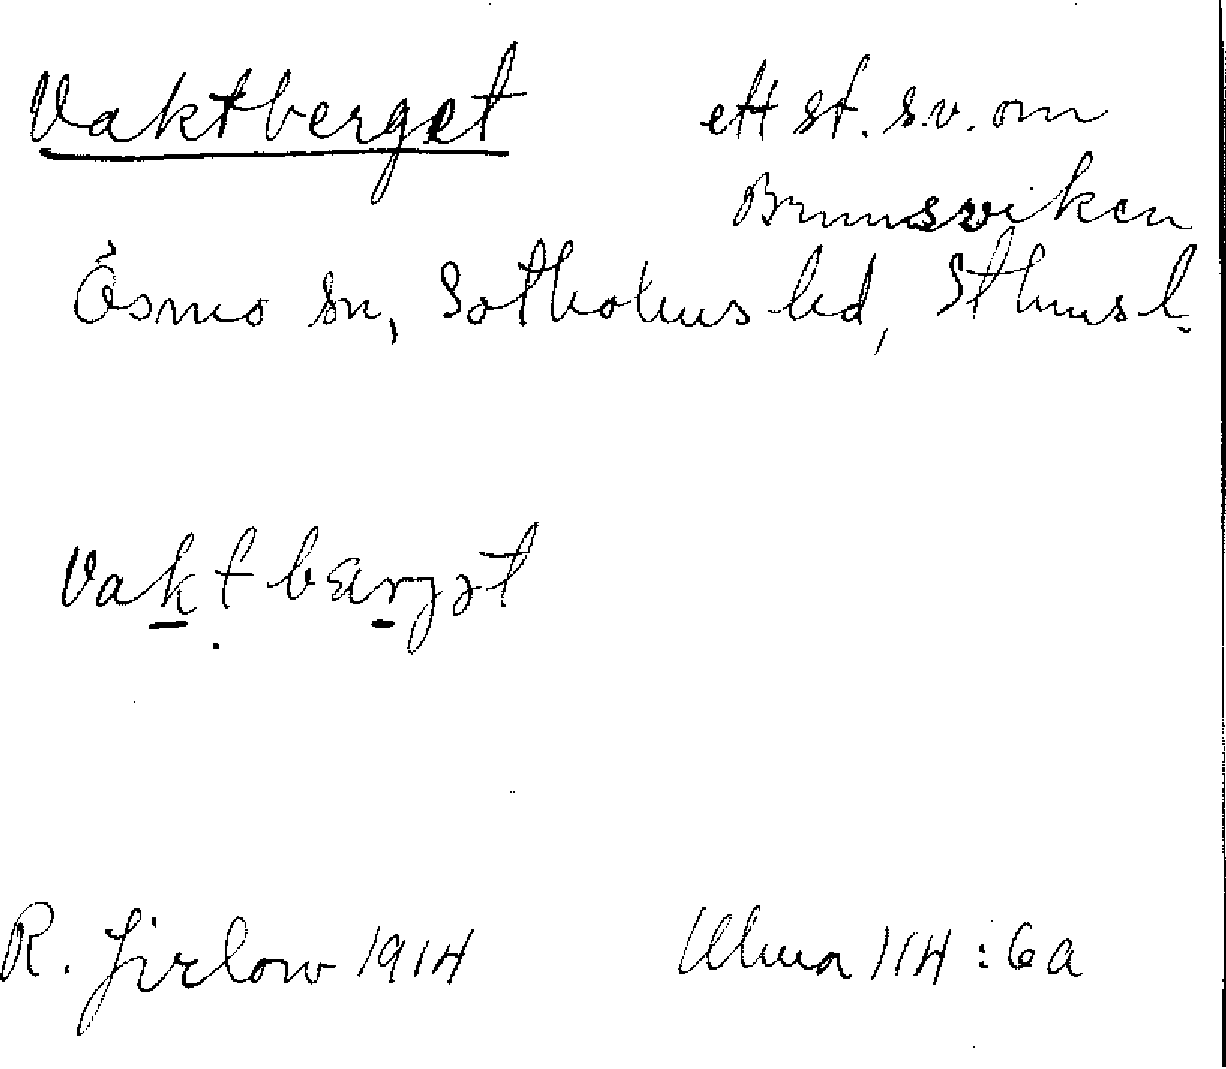 Vaktberget ett st. s.v. om
Brunsviken
Ösmo sn, Sotholms hd, Sthms l.
Vaktbærgət
R. Jirlow 1914 Ulma 114:6a